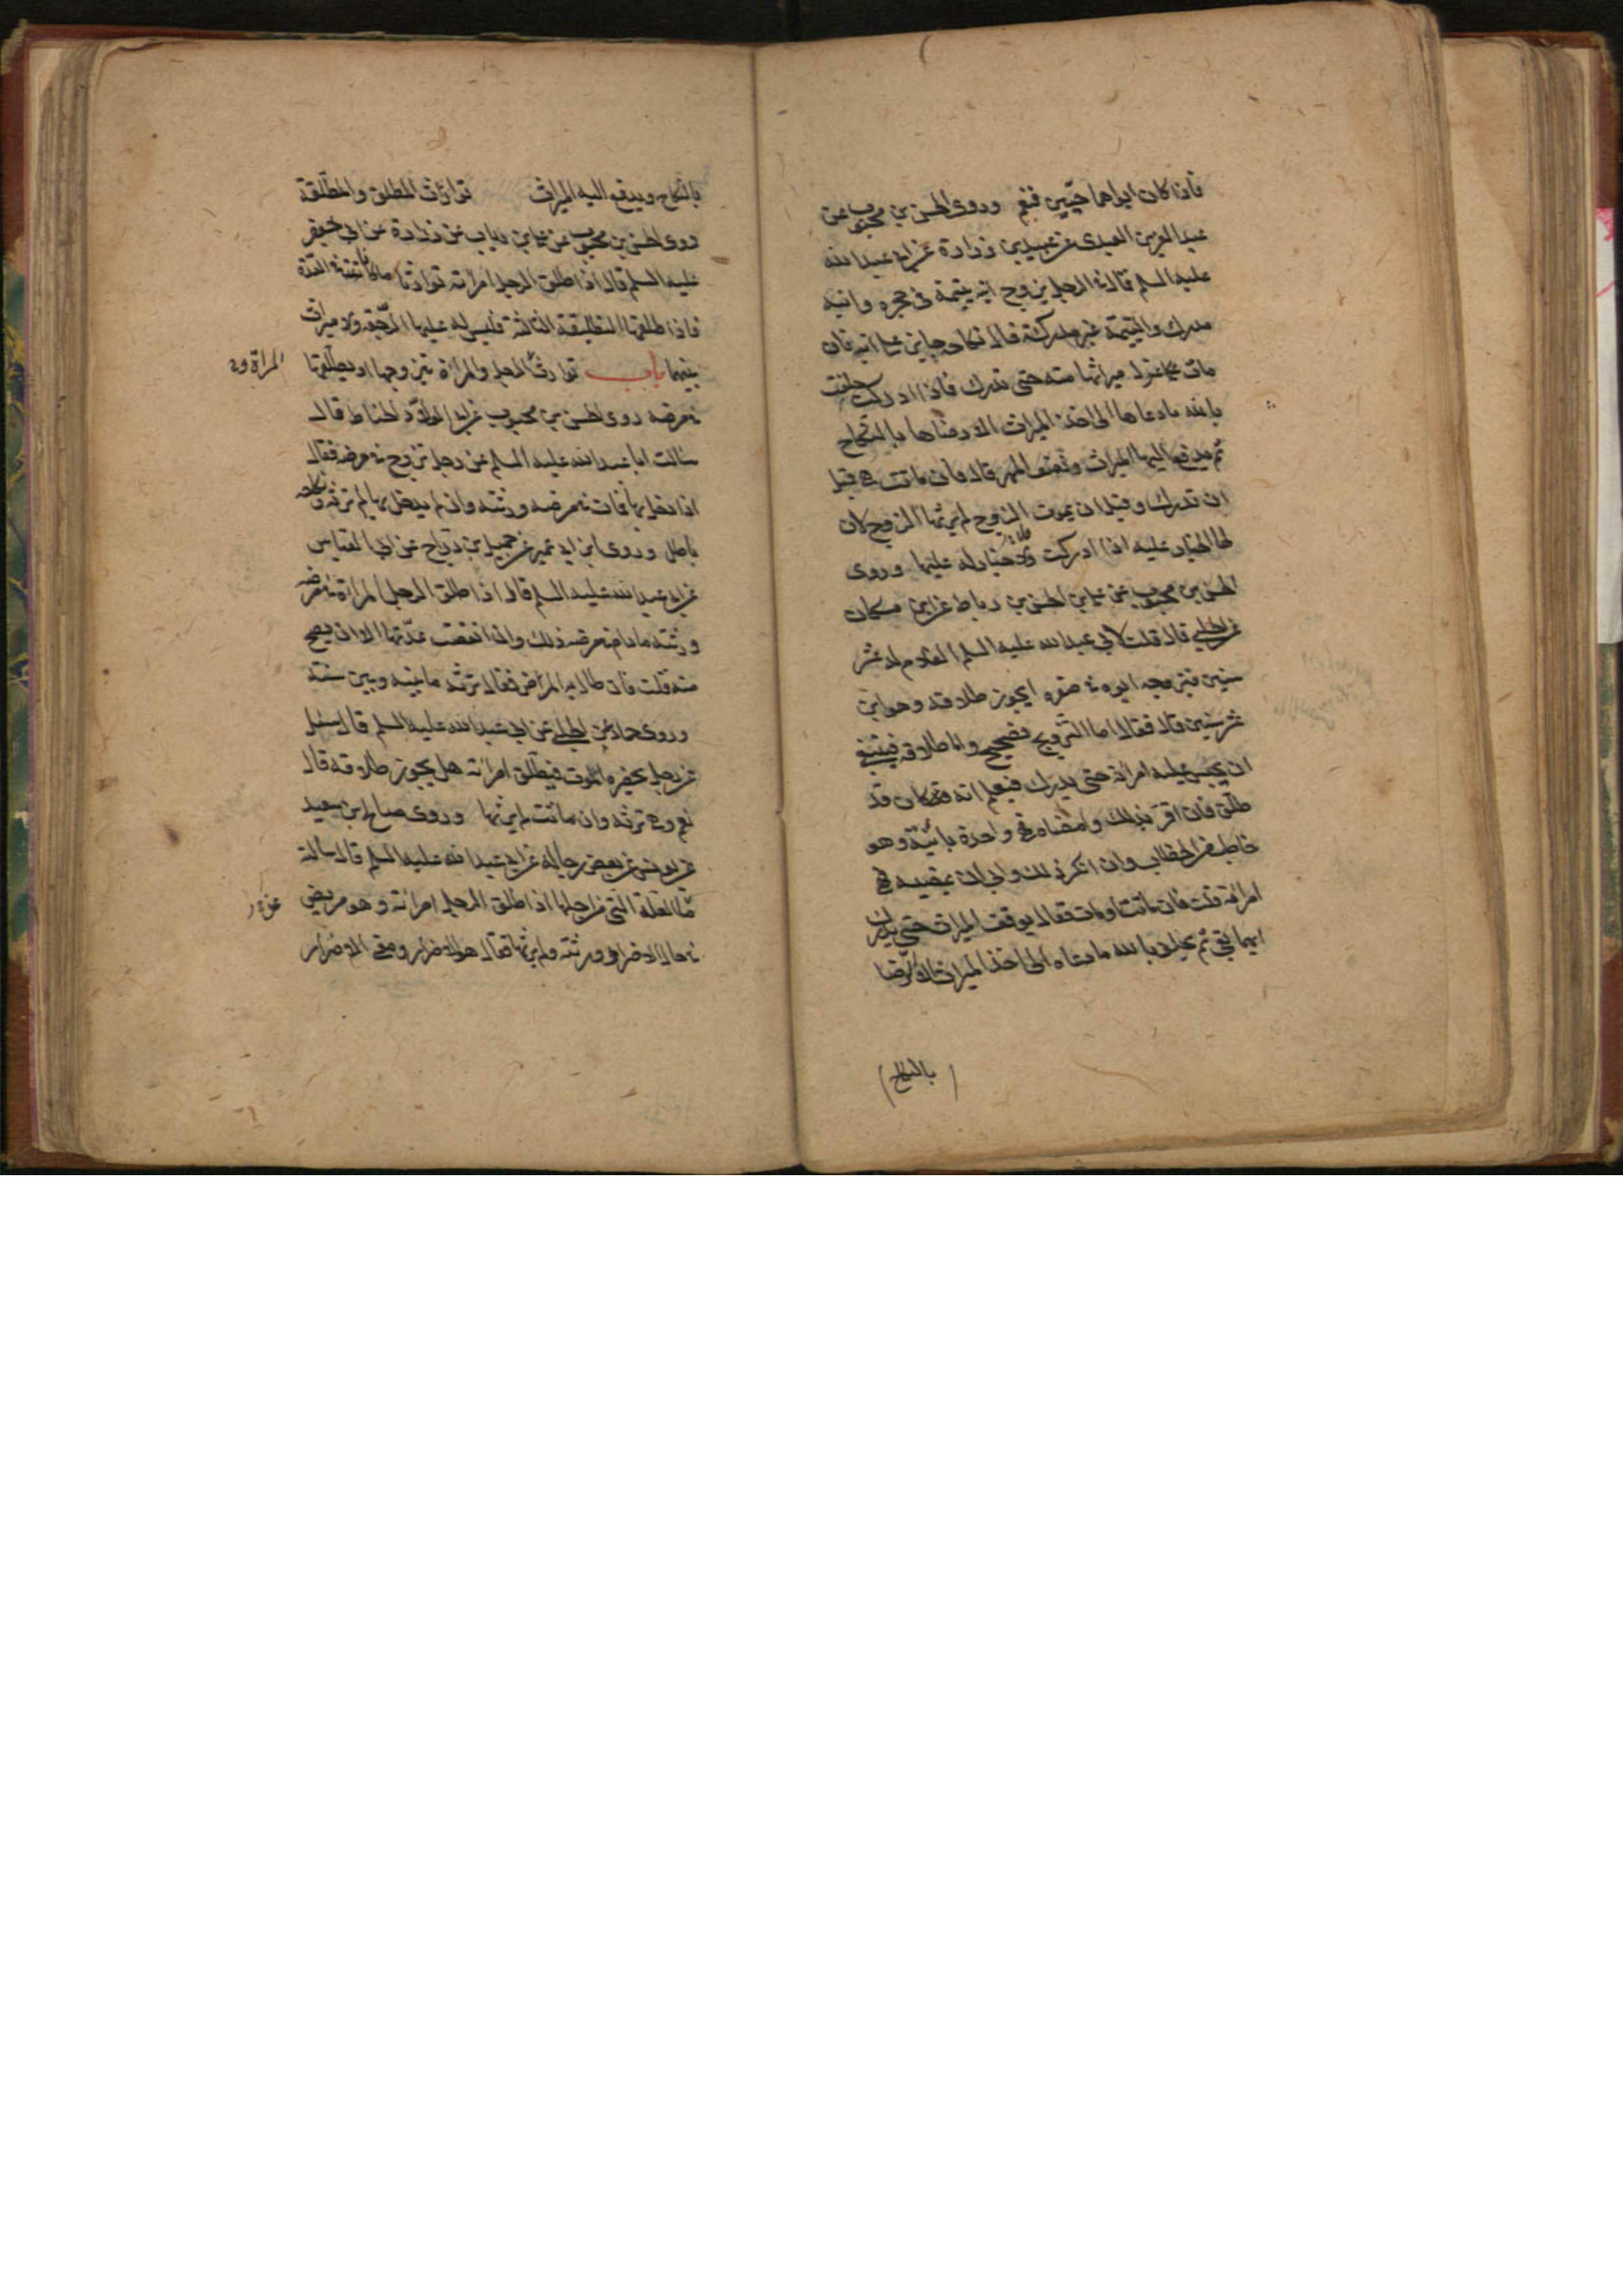 فان كان ابواهما حيّين فنعم وروى الحسن بن محبوب عن
عبد العزيز العبدى عن عبيد بن زرارة عن ابى عبد الله
عليه السلم قال فى الرجل يزوج ابنه يتيمة فى حجره وابنه
مدرك واليتيمة غير مدركة قال نكاحه جايز على ابنه فان
مات عزل ميراثها منه حتى تدرك فاذا ادركت حلفت
بالله ما دعاها الى اخذ الميراث الا رضاها بالنكاح
ثم يدفع اليها الميراث ونصف المهر قال فان ماتت هى قبل
ان تدرك وقبل ان يموت الزوج لم يرثها الزوج لان
لها الخيار عليه اذا ادركت ولا خيار له عليها وروى
الحسن بن محبوب عن على بن الحسن بن رباط عن ابن مسكان
عن الحلبى قال قلت لابي عبد الله عليه السلم الغلام له عشر
سنين فيزوجه ابوه فى صغره ايجوز طلاقه وهو ابن
عشر سنين قال فقال اما التزويج فصحيح واما طلاقه فينبغى
ان يحبس عليه امراته حتى يدرك فيعلم انه كان قد
طلق فان اقر بذلك وامضاه فهى واحدة باينة وهو
خاطب من الخطاب وان انكر ذلك وابى ان يمضيه فهى
امراته قلت فان ماتت او مات فقال يوقف الميراث حتى يدرك
ايهما بقى ثم يحلف بالله ما دعاه الى اخذ الميراث الا الرضا
بالنكاح
بالنكاح ويدفع اليه الميراث توارث المطلق والمطلقة
روى الحسن بن محبوب عن على بن رياب عن زرارة عن ابى جعفر
عليه السلم قال اذا طلق الرجل امراته توارثا ما كانت فى العدة
فاذا طلقها التطليقة الثالثة فليس له عليها الرجعة ولا ميراث
بينهما باب توارث الرجل والمراة تتزوجها او يطلقها
فى مرضه روى الحسن بن محبوب عن ابى ولاد الحناط قال
سالت ابا عبد الله عليه السلم عن رجل تزوج فى مرضه فقال
اذا دخل بها فمات فى مرضه ورثته وان لم يدخل بها لم ترثه ونكاحه
باطل وروى ابن ابى عمير عن جميل بن دراج عن ابى العباس
عن ابى عبد الله عليه السلم قال اذا طلق الرجل المراة فى مرضه
ورثته ما دام فى مرضه ذلك وان انقضت عدتها الا ان يصح
منه قلت فان طال به المرض فقال ترثه ما بينه وبين سنة
وروى حماد عن الحلبى عن ابى عبد الله عليه السلم قال سئل
عن رجل يحضره الموت فيطلق امراته هل يجوز طلاقه قال
نعم وهى ترثه وان ماتت لم يرثها وروى صالح بن سعيد
عن يونس عن بعض رجاله عن ابى عبد الله عليه السلم قال سالته
ما العلة التى من اجلها اذا طلق الرجل امراته وهو مريض
فى حال الاضرار ورثته ولم يرثها فقال هو الاضرار ومعنى الاضرار